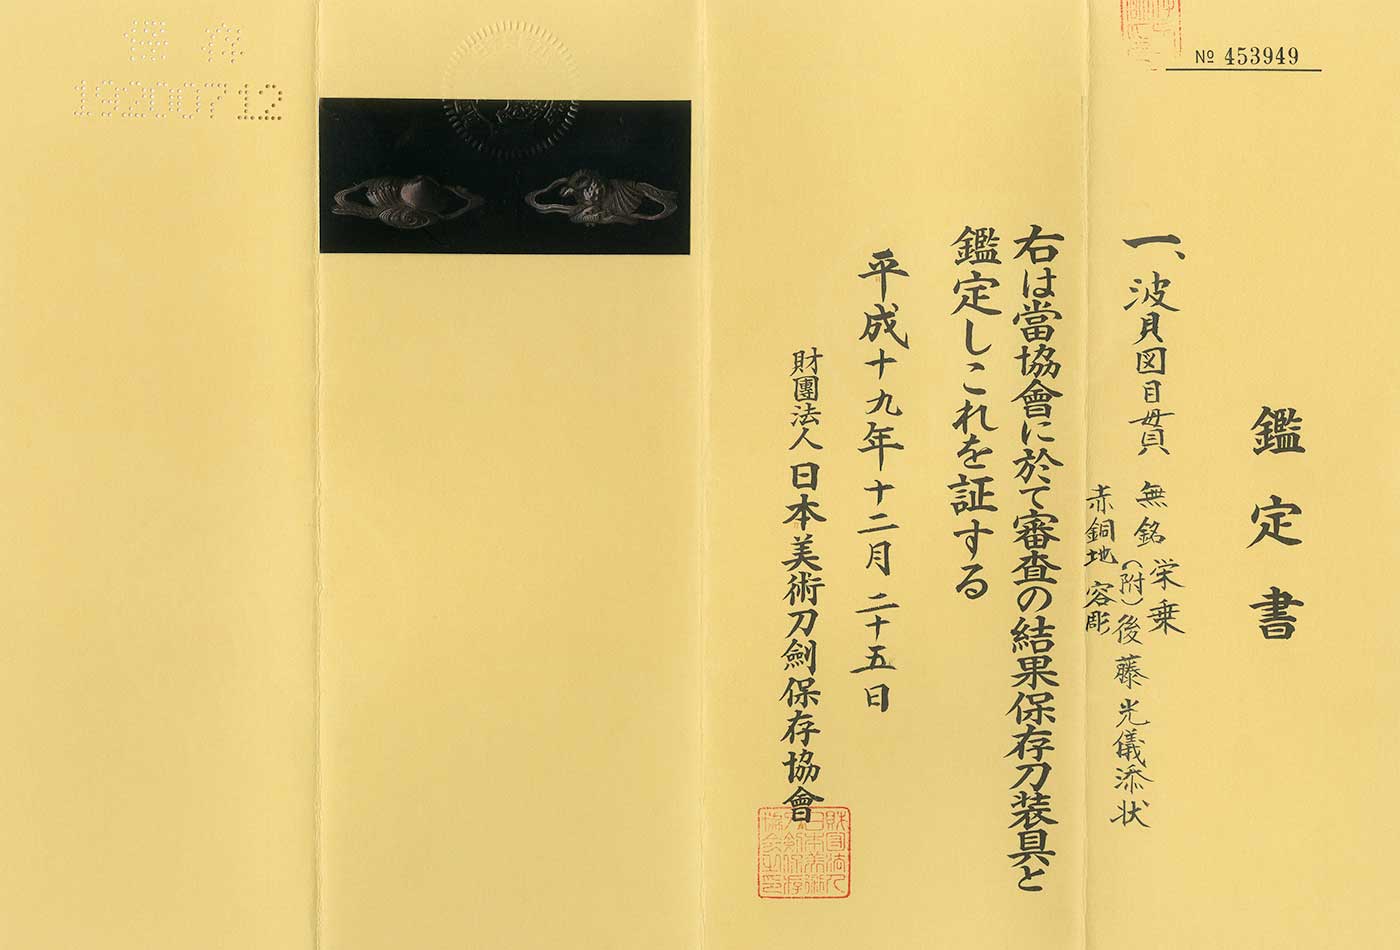 № 453949
鑑定書
一、波貝図目貫 無銘 栄乗
(附)後藤光儀添状
赤銅地 容彫
右は當協會に於て審査の結果保存刀装具と
鑑定しこれを証する
平成十九年十二月二十五日
財團法人日本美術刀劍保存協會
保存
19200712